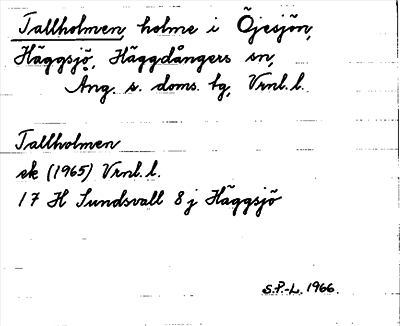 Tallholmen, holme i Öjesjön,
Häggsjö, Häggdångers sn,
Ång. s. doms. tg, Vrnl. l.
Tallholmen
ek (1965) Vrnl. l.
17 H Sundsvall 8 j Häggsjö
S.P.-L. 1966.